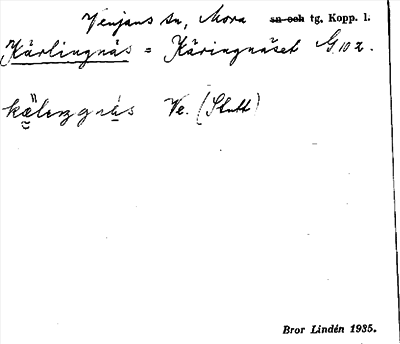 Venjans sn, Mora sn och tg, Kopp. l.
Kärlingnäs = Käringnäset G102.
Ve. (Slutt)
Bror Lindén 1935.